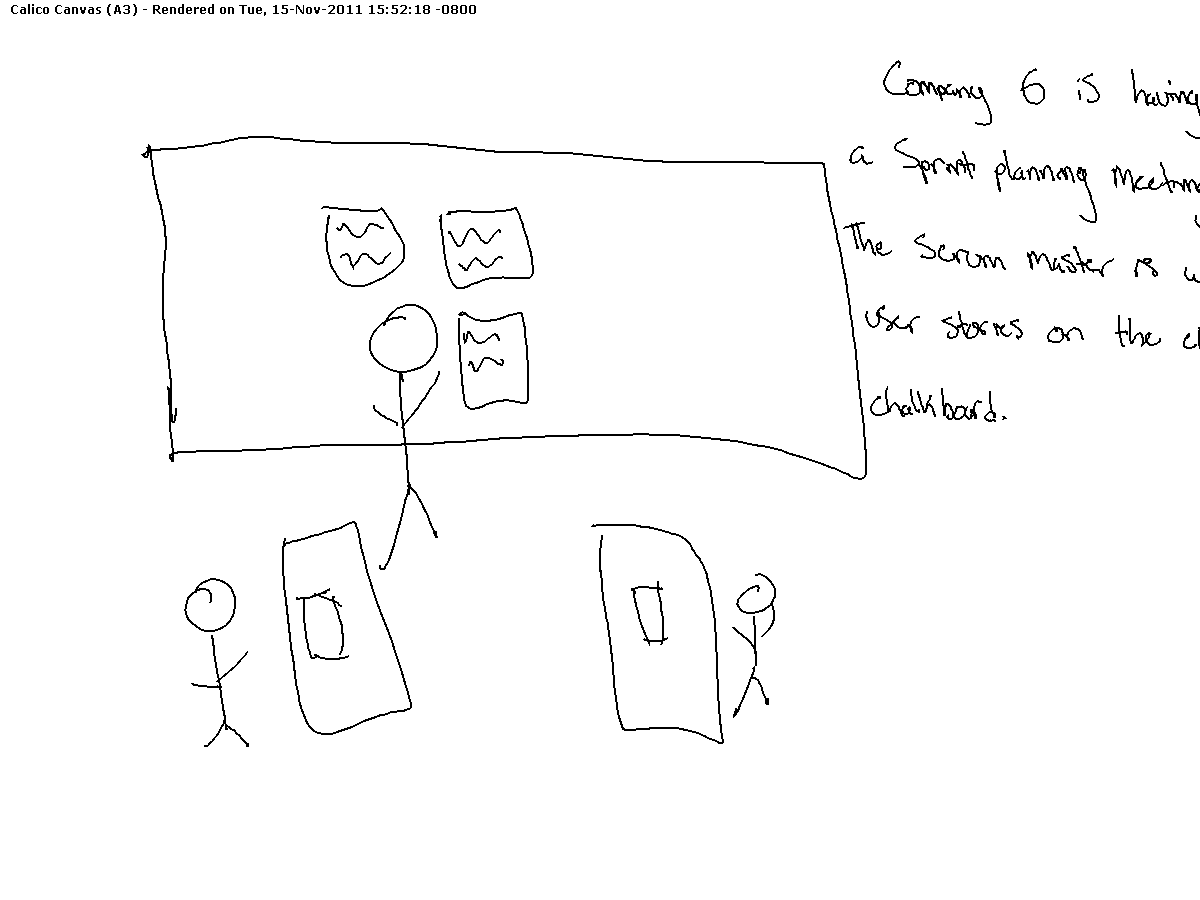 Calico Canvas (A3) - Rendered on Tue, 15-Nov-2011 15:52:18 -0800
Company 6 is having
a Sprint planning meetin
The scrum master is
user stories on the
chalkboard.